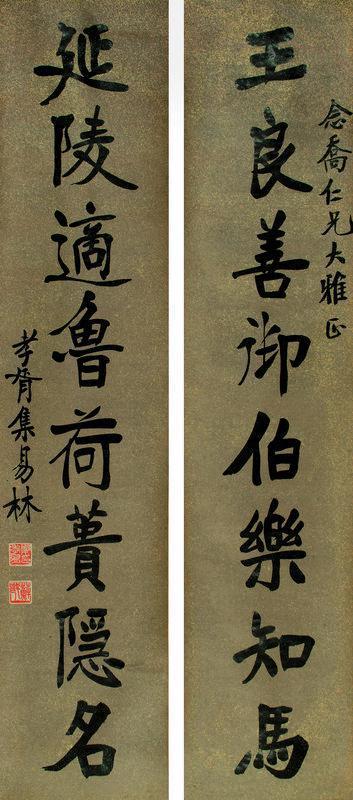 念喬仁兄大雅正
王良善御伯樂知馬
延陵適魯荷蕢隱名
孝胥集易林